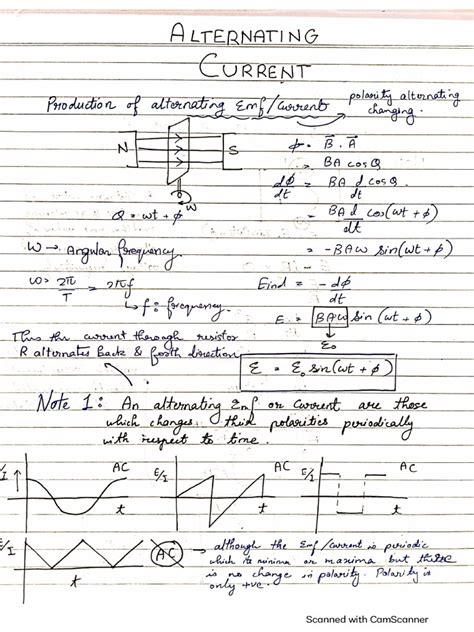 ALTERNATING
CURRENT
Production of alternating Emf/Current
polarity alternating
changing.
N S
ω
ϕ = B⃗ . A⃗
= BA cosQ
dϕ/dt = BA d cosQ/dt
Q = ωt + ϕ
= BA d/dt cos(ωt + ϕ)
ω → Angular frequency.
= -BAω Sin(ωt + ϕ)
ω = 2π/T = 2πf
Eind = -dϕ/dt
↳ f: frequency.
E = BAω Sin(ωt + ϕ)
Eo
Thus the current through resistor
R alternates Back & forth direction
E = Eo Sin(ωt + ϕ)
Note 1: An alternating Emf or Current are those
which changes their polarities periodically
with respect to time.
E/I AC t
E/I AC t
E/I AC t
E/I t
AC → although the Emf/Current is periodic
which its minima or maxima but there
is no change in polarity. Polarity is
only +ve.
Scanned with CamScanner